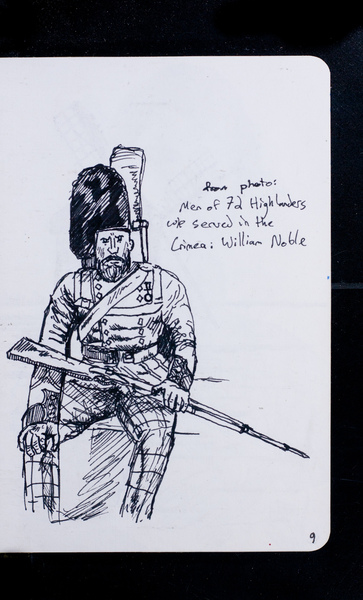 from photo:
Men of 72 Highlanders
who served in the
Crimea: William Noble
9